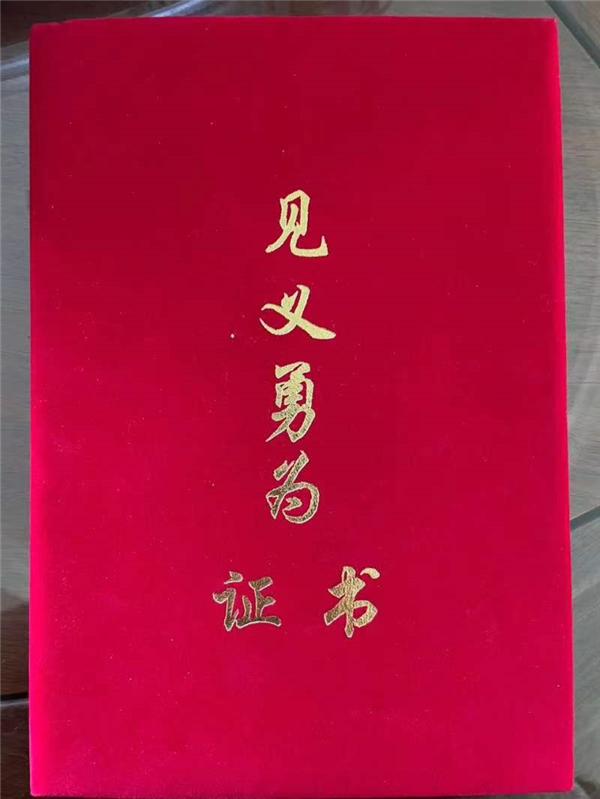 见义勇为
证书